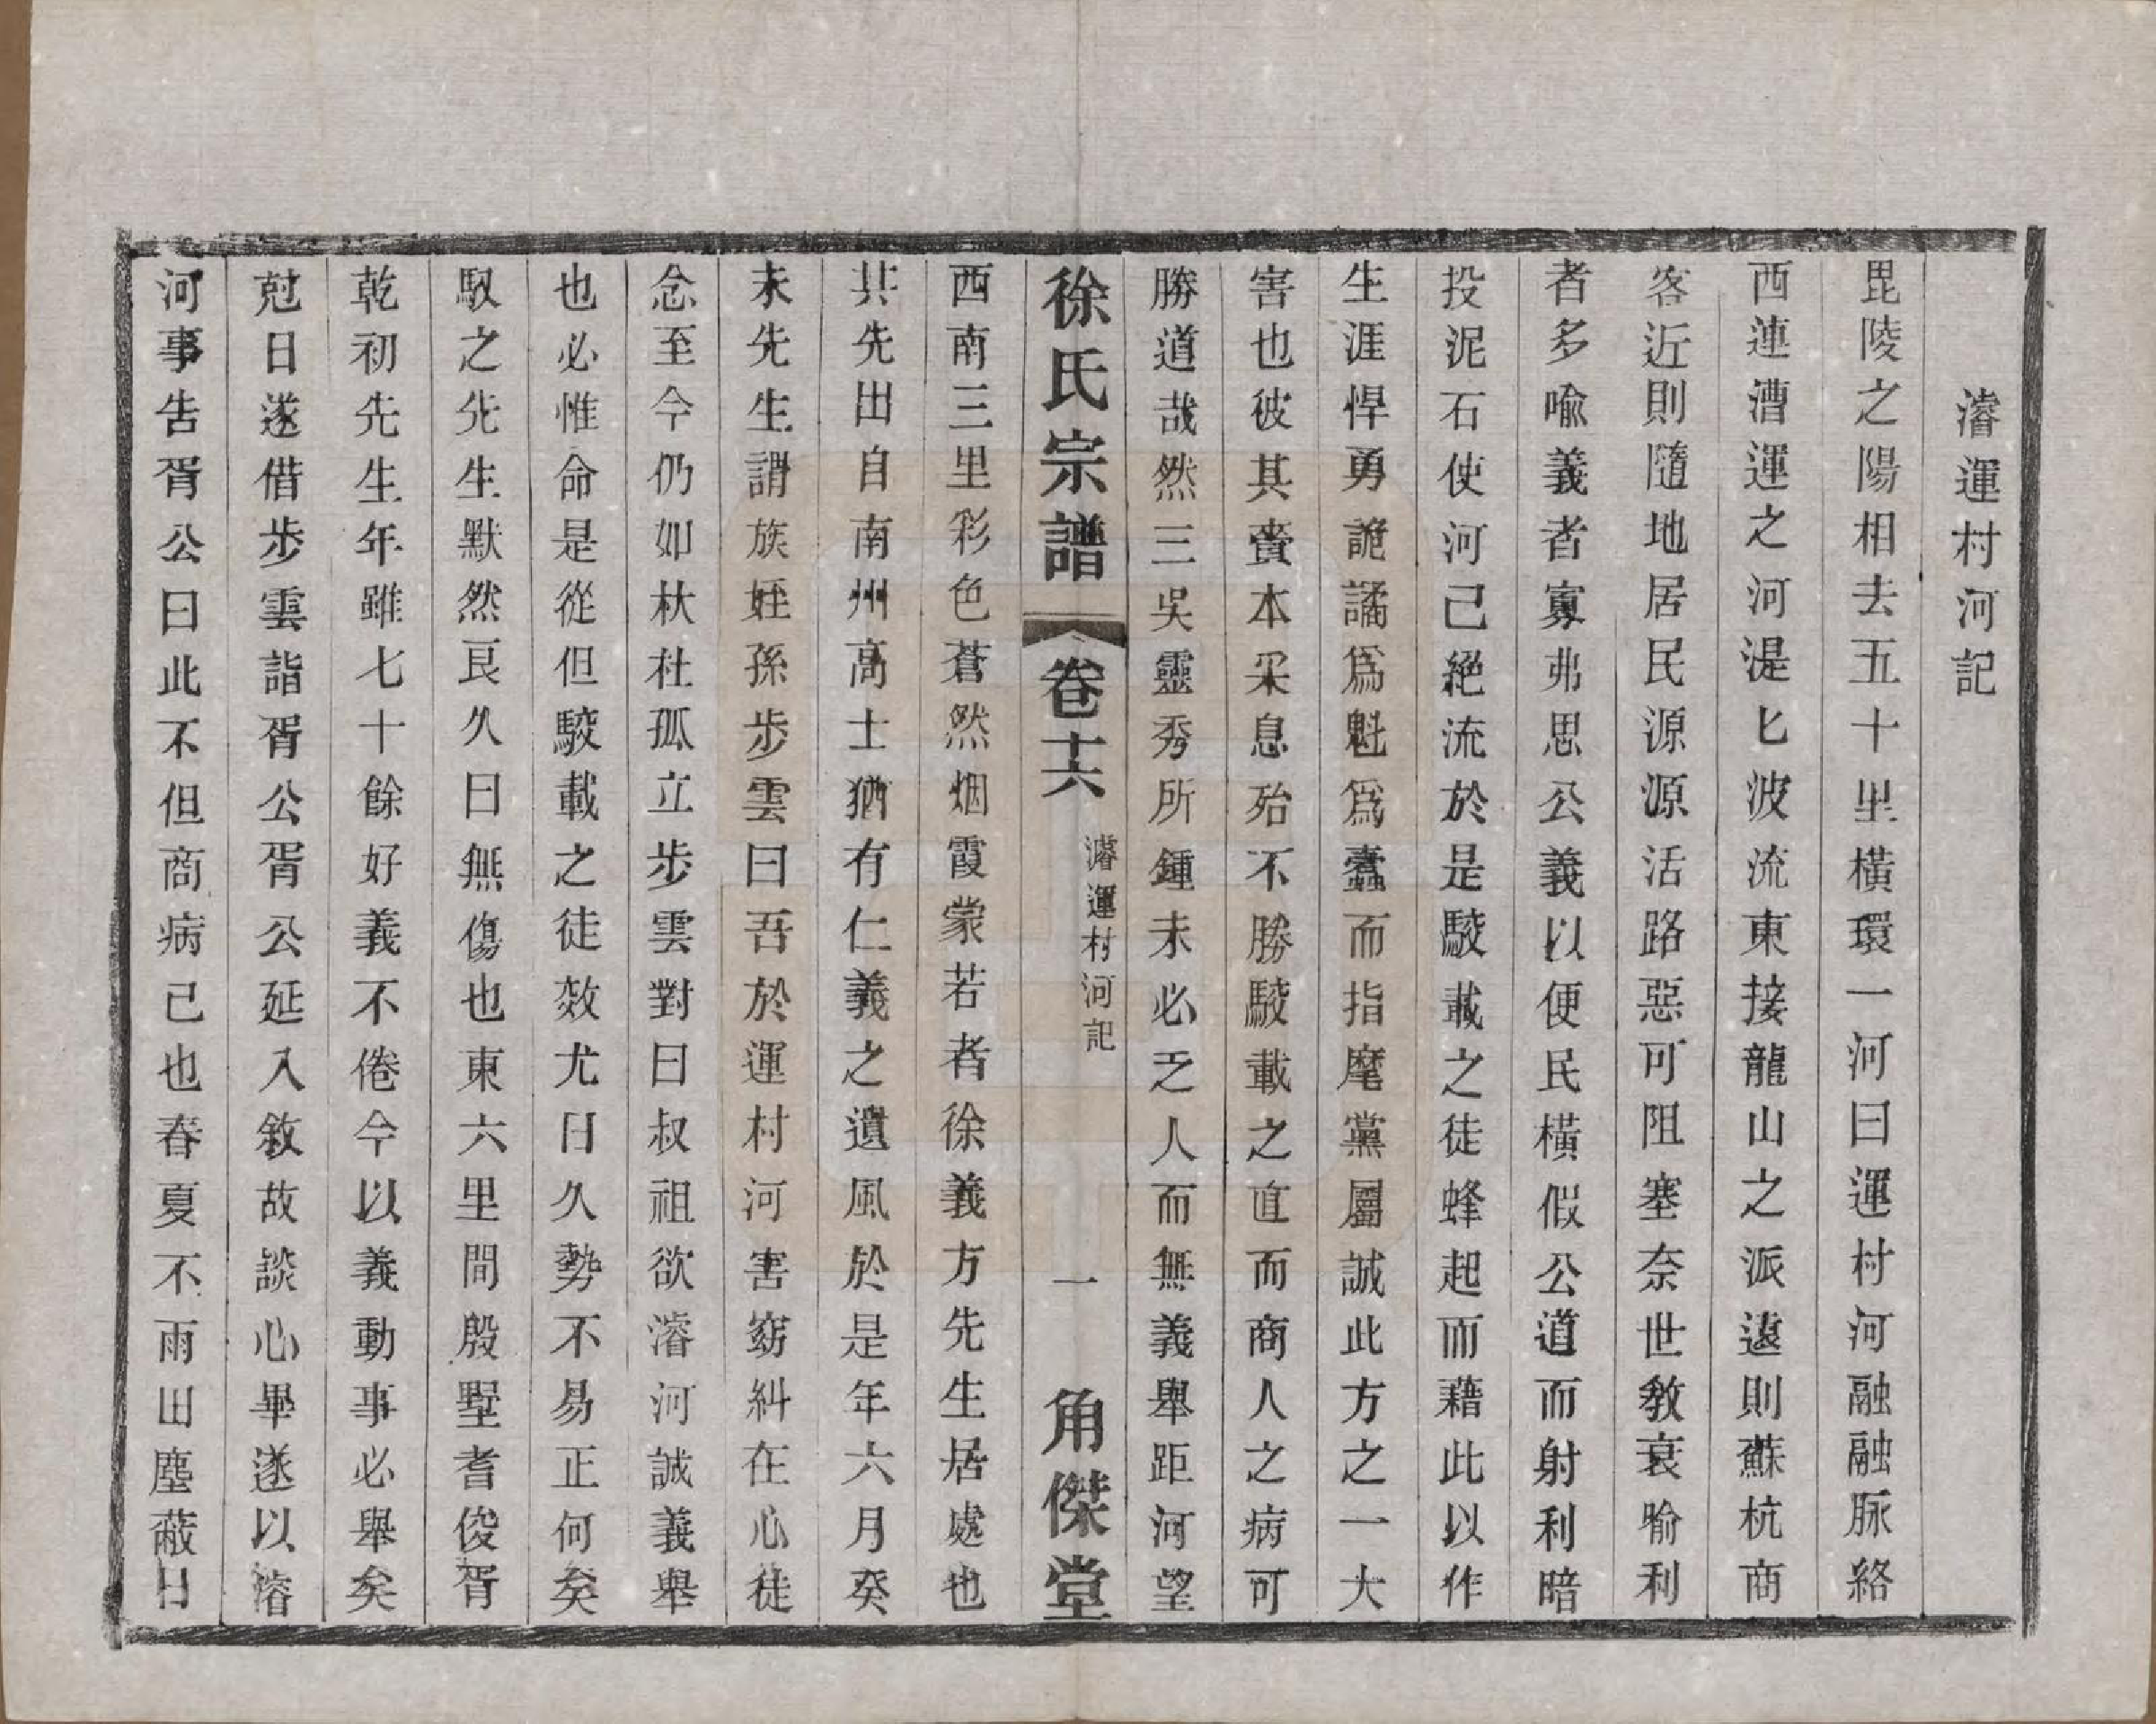 濬運村河記
毘陵之陽相去五十里橫環一河曰運村河融融脈絡
西連漕運之河湜匕波流東接龍山之派遠則蘇杭商
客近則隨地居民源源活路惡可阻塞奈世教衰喻利
者多喻義者寡弗思公義以便民橫假公道而射利暗
投泥石使河己絕流於是駮載之徒蜂起而藉此以作
生涯悍勇詭譎爲魁爲蠹而指麾黨屬誠此方之一大
害也彼其賫本采息殆不勝駮載之直而商人之病可
勝道哉然三吳靈秀所鍾未必乏人而無義舉距河望
徐氏宗譜
卷十六
濬運村河記
一
角傑堂
西南三里彩色蒼然烟霞蒙若者徐義方先生居處也
其先出自南州高士猶有仁義之遺風於是年六月癸
未先生謂族姪孫步雲曰吾於運村河害竊糾在心徒
念至今仍如杕杜孤立步雲對曰叔祖欲濬河誠義舉
也必惟命是從但駮載之徒效尤日久勢不易正何矣
馭之先生默然良久曰無傷也東六里間殷墅耆俊胥
乾初先生年雖七十餘好義不倦今以義動事必舉矣
尅日遂借步雲詣胥公胥公延入敘故談心畢遂以濬
河事告胥公曰此不但商病己也春夏不雨田塵蔽日